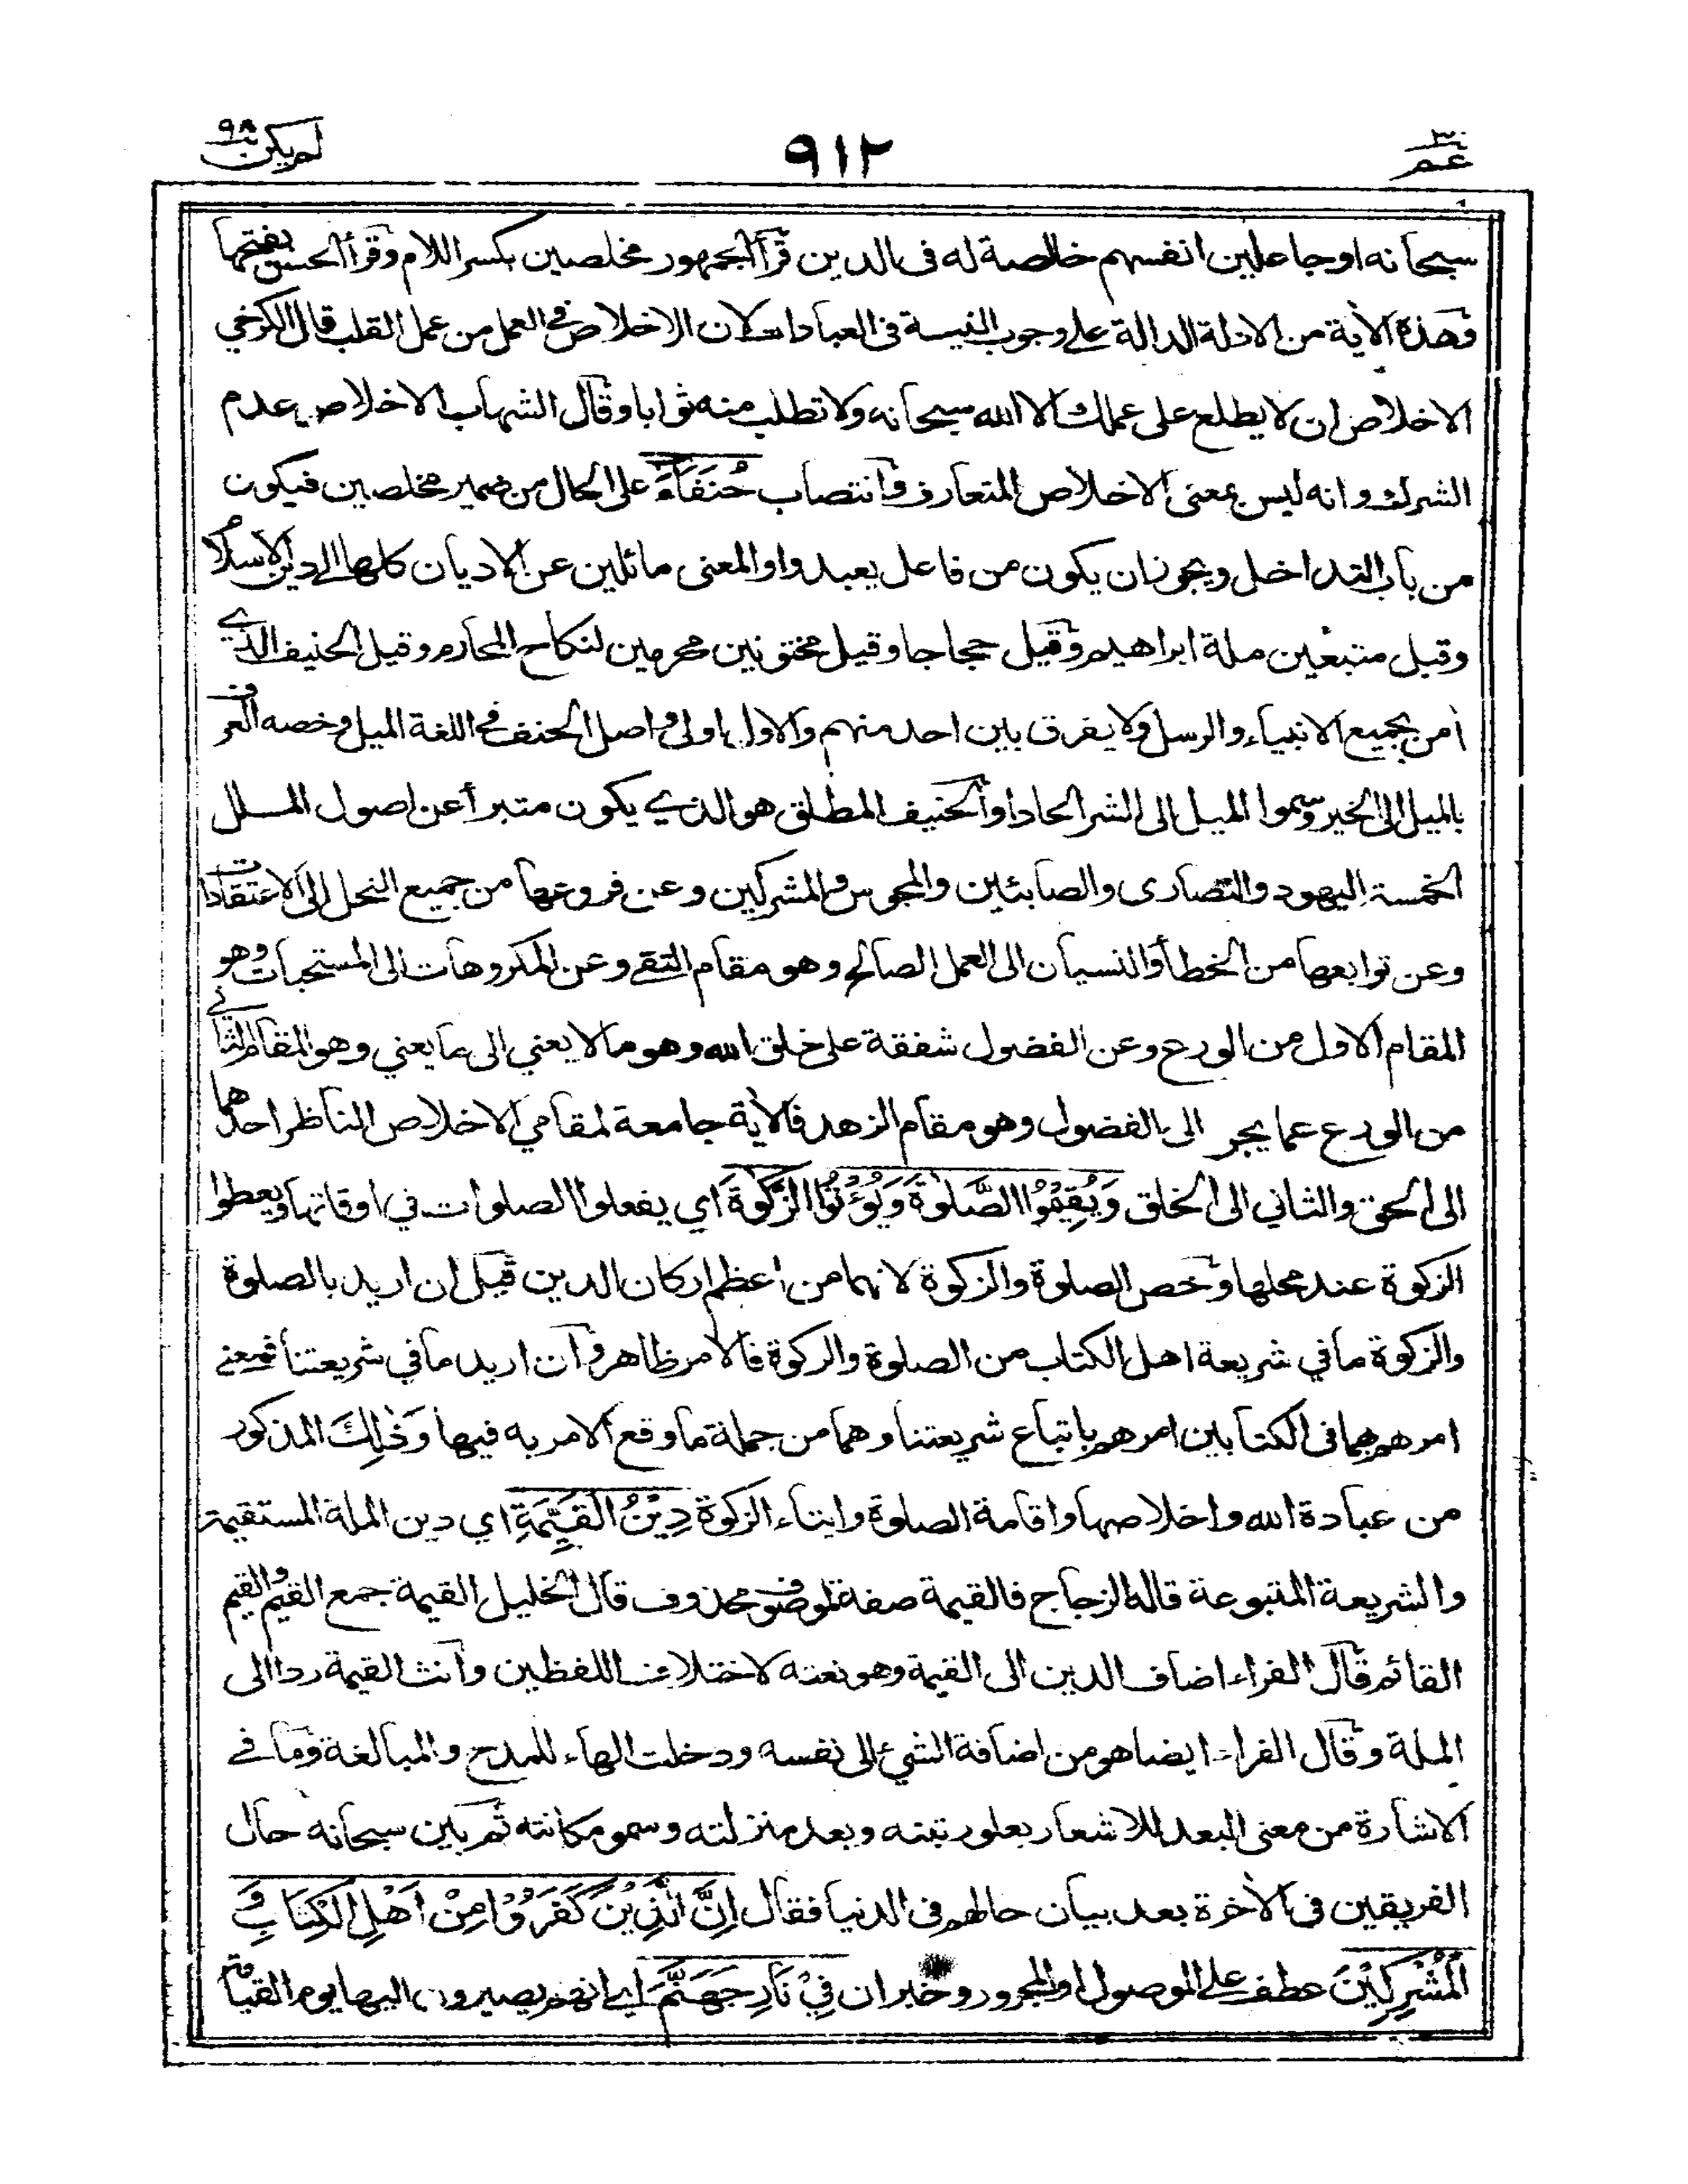 عم ٣٠
٩١٢
لم يكن ٩٨
سبحانه او جاعلين انفسهم خالصة له فى الدين قرأ الجمهور مخلصين بكسر اللام وقرأ الحسن بفتحها
وهذه الاٰية من الادلة الدالة على وجوب النية فى العبادات لان الاخلاص فى العمل من عمل القلب قال الكرخي
الاخلاص ان لا يطلع على عملك الا الله سبحانه ولا تطلب منه ثوابا وقال الشهاب الاخلاص عدم
الشرك وانه ليس بمعنى الاخلاص المتعارف وانتصاب حُنَفَاءَ على الحال من ضمير مخلصين فيكون
من باب التداخل ويجوز ان يكون من فاعل يعبدوا والمعنى مائلين عن الاديان كلها الى دين الاسلام
وقيل متبعين ملة ابراهيم وقيل حجاجا وقيل مختونين محرمين لنكاح المحارم وقيل الحنيف الذي
اٰمن بجميع الانبياء والرسل ولا يفرق بين احد منهم والاول اولى واصل الحنف فى اللغة الميل وخصه العرف
بالميل الى الخير وسموا الميل الى الشر الحادا والحنيف المطلق هو الذي يكون متبرأ عن اصول الملل
الخمسة اليهود والنصارى والصابئين والمجوس والمشركين وعن فروعها من جميع النحل الى الاعتقادات
وعن توابعها من الخطأ والنسيان الى العمل الصالح وهو مقام التقى وعن المكروهات الى المستحبات وهو
المقام الاول من الورع وعن الفضول شفقة على خلق الله وهو ما لا يعني الى ما يعني وهو المقام الثاني
من الورع عما يجر الى الفضول وهو مقام الزهد فالاٰية جامعة لمقامي الاخلاص الناظر احدهما
الى الحق والثاني الى الخلق وَيُقِيْمُوا الصَّلٰوةَ وَيُؤْتُوا الزَّكٰوةَ اي يفعلوا الصلوات في اوقاتها ويعطوا
الزكوة عند محلها وخص الصلوة والزكوة لانهما من اعظم اركان الدين قيل ان اريد بالصلوة
والزكوة ما في شريعة اهل الكتاب من الصلوة والزكوة فالامر ظاهر وان اريد ما في شريعتنا فمعنى
امرهم بهما فى الكتابين امرهم باتباع شريعتنا وهما من جملة ما وقع الامر به فيها وَذٰلِكَ المذكور
من عبادة الله واخلاصها واقامة الصلوة وايتاء الزكوة دِيْنُ الْقَيِّمَةِ اي دين الملة المستقيمة
والشريعة المتبوعة قاله الزجاج فالقيمة صفة لموصوف محذوف قال الخليل القيمة جمع القيم والقيم
القائم قال الفراء اضاف الدين الى القيمة وهو نعته لاختلاف اللفظين وانث القيمة ردا الى
الملة وقال الفراء ايضا هو من اضافة الشيء الى نفسه ودخلت الهاء للمدح والمبالغة وما فى
الاشارة من معنى البعد للاشعار بعلو رتبته وبعد منزلته وسمو مكانته ثم بين سبحانه حال
الفريقين فى الاٰخرة بعد بيان حالهم فى الدنيا فقال اِنَّ الَّذِيْنَ كَفَرُوْا مِنْ اَهْلِ الْكِتَابِ وَ
الْمُشْرِكِيْنَ عطف على الموصول او المجرور وخبر ان فِيْ نَارِ جَهَنَّمَ اي انهم يصيرون اليها يوم القيامة